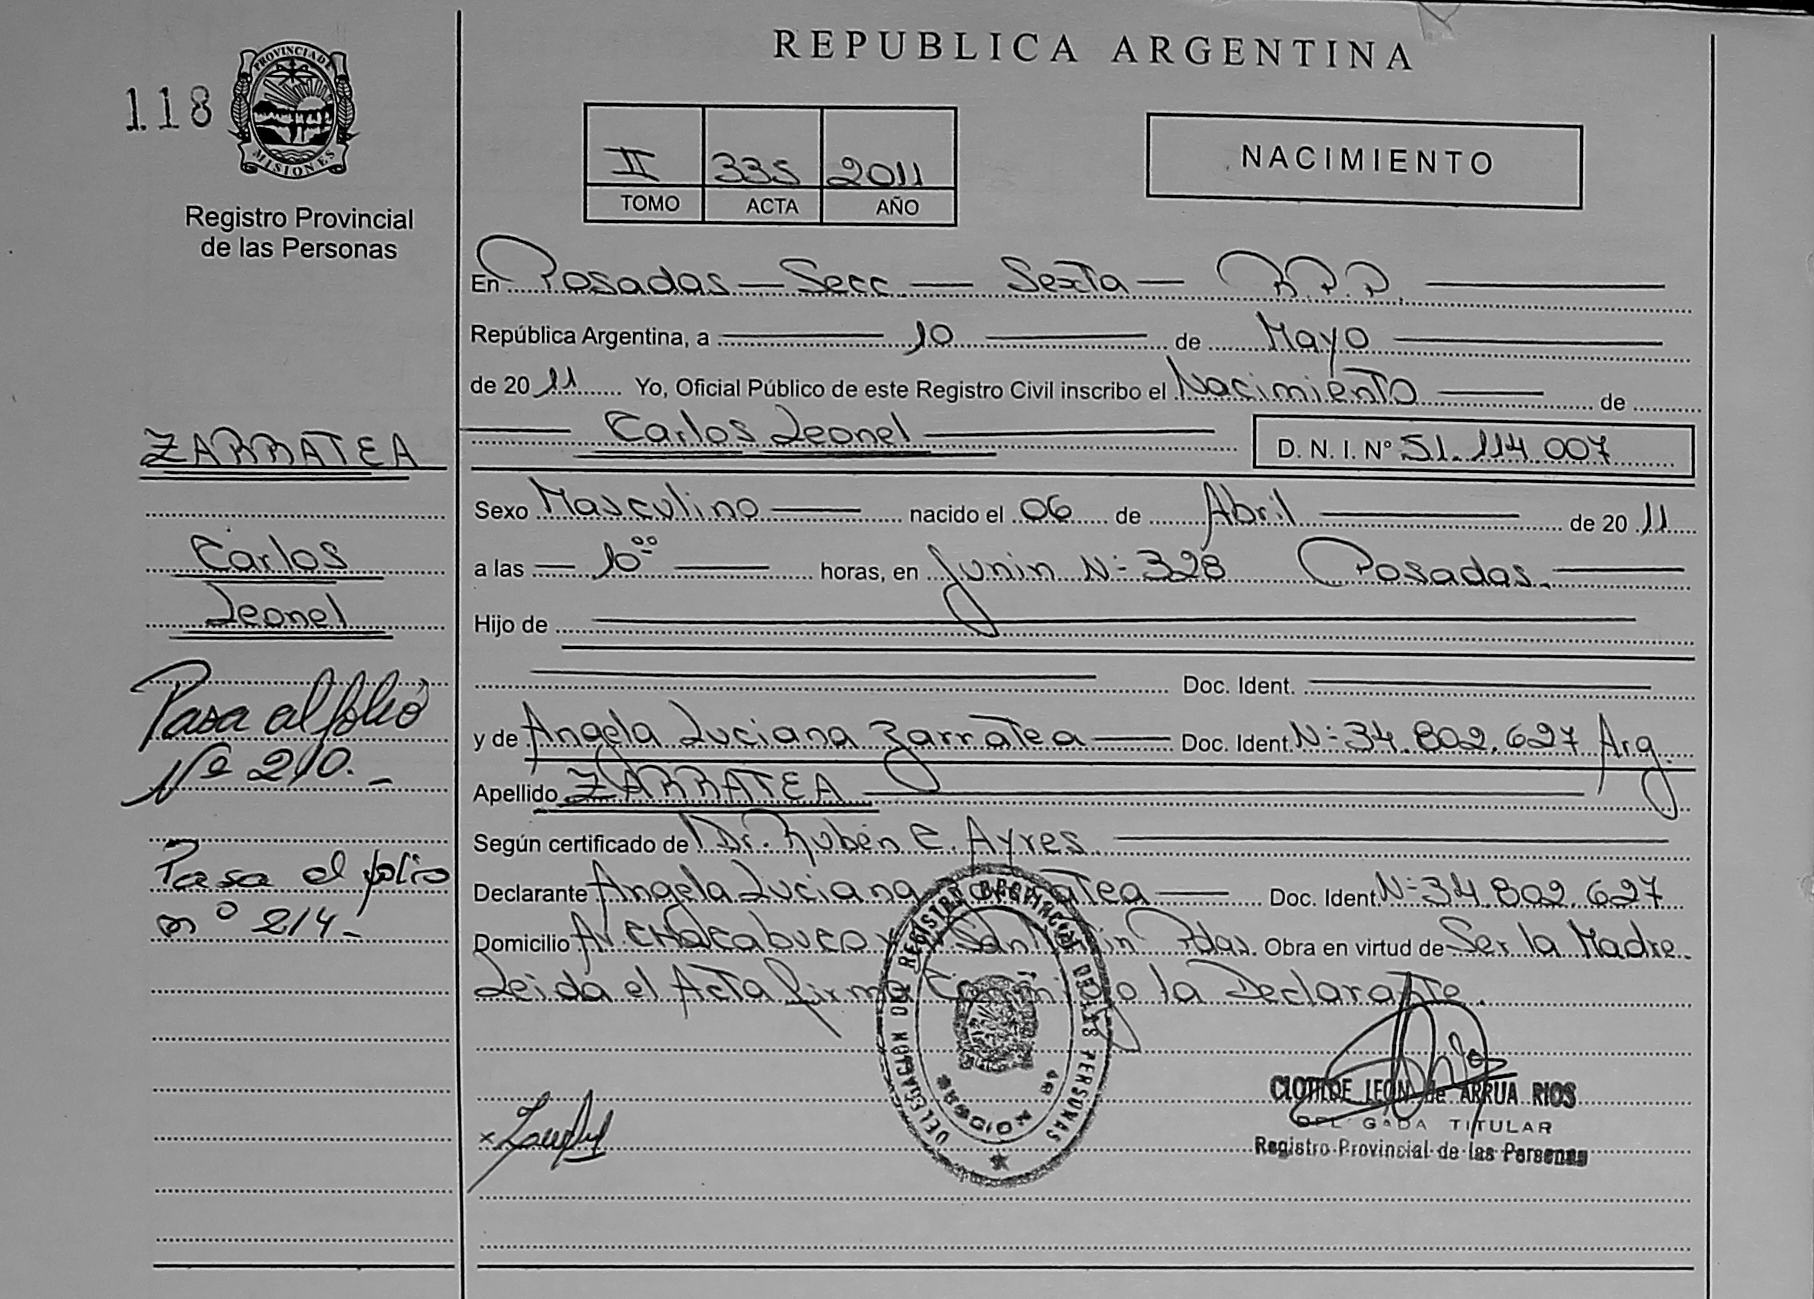 REPUBLICA ARGENTINA
118
PROVINCIA DE MISIONES
Registro Provincial
de las Personas
II 335 2011
TOMO ACTA AÑO
NACIMIENTO
En Posadas — Secc — Sexta — R.P.P.
República Argentina, a 10 de Mayo
de 2011 Yo, Oficial Público de este Registro Civil inscribo el Nacimiento de
Carlos Leonel D. N. I. Nº 51.114.007
Sexo Masculino nacido el 06 de Abril de 2011
a las 10:00 horas, en Junin Nº 328 Posadas.
Hijo de
Doc. Ident.
y de Angela Luciana Zarratea Doc. Ident. Nº 34.802.627 Arg.
Apellido ZARRATEA
Según certificado de Dr. Rubén C. Ayres
Declarante Angela Luciana Zarratea Doc. Ident. Nº 34.802.627
Domicilio Av. CHacabuco y San Pdas. Obra en virtud de Ser la Madre.
Leida el Acta firma Conmigo la Declarante.
ZARRATEA
Carlos
Leonel
Pasa al folio
Nº 210.-
Pasa al folio
nº 214-
DELEGACION DEL REGISTRO PROVINCIAL DE LAS PERSONAS
MISIONES
CLOTILDE LEON de ARRUA RIOS
DELEGADA TITULAR
Registro Provincial de las Personas